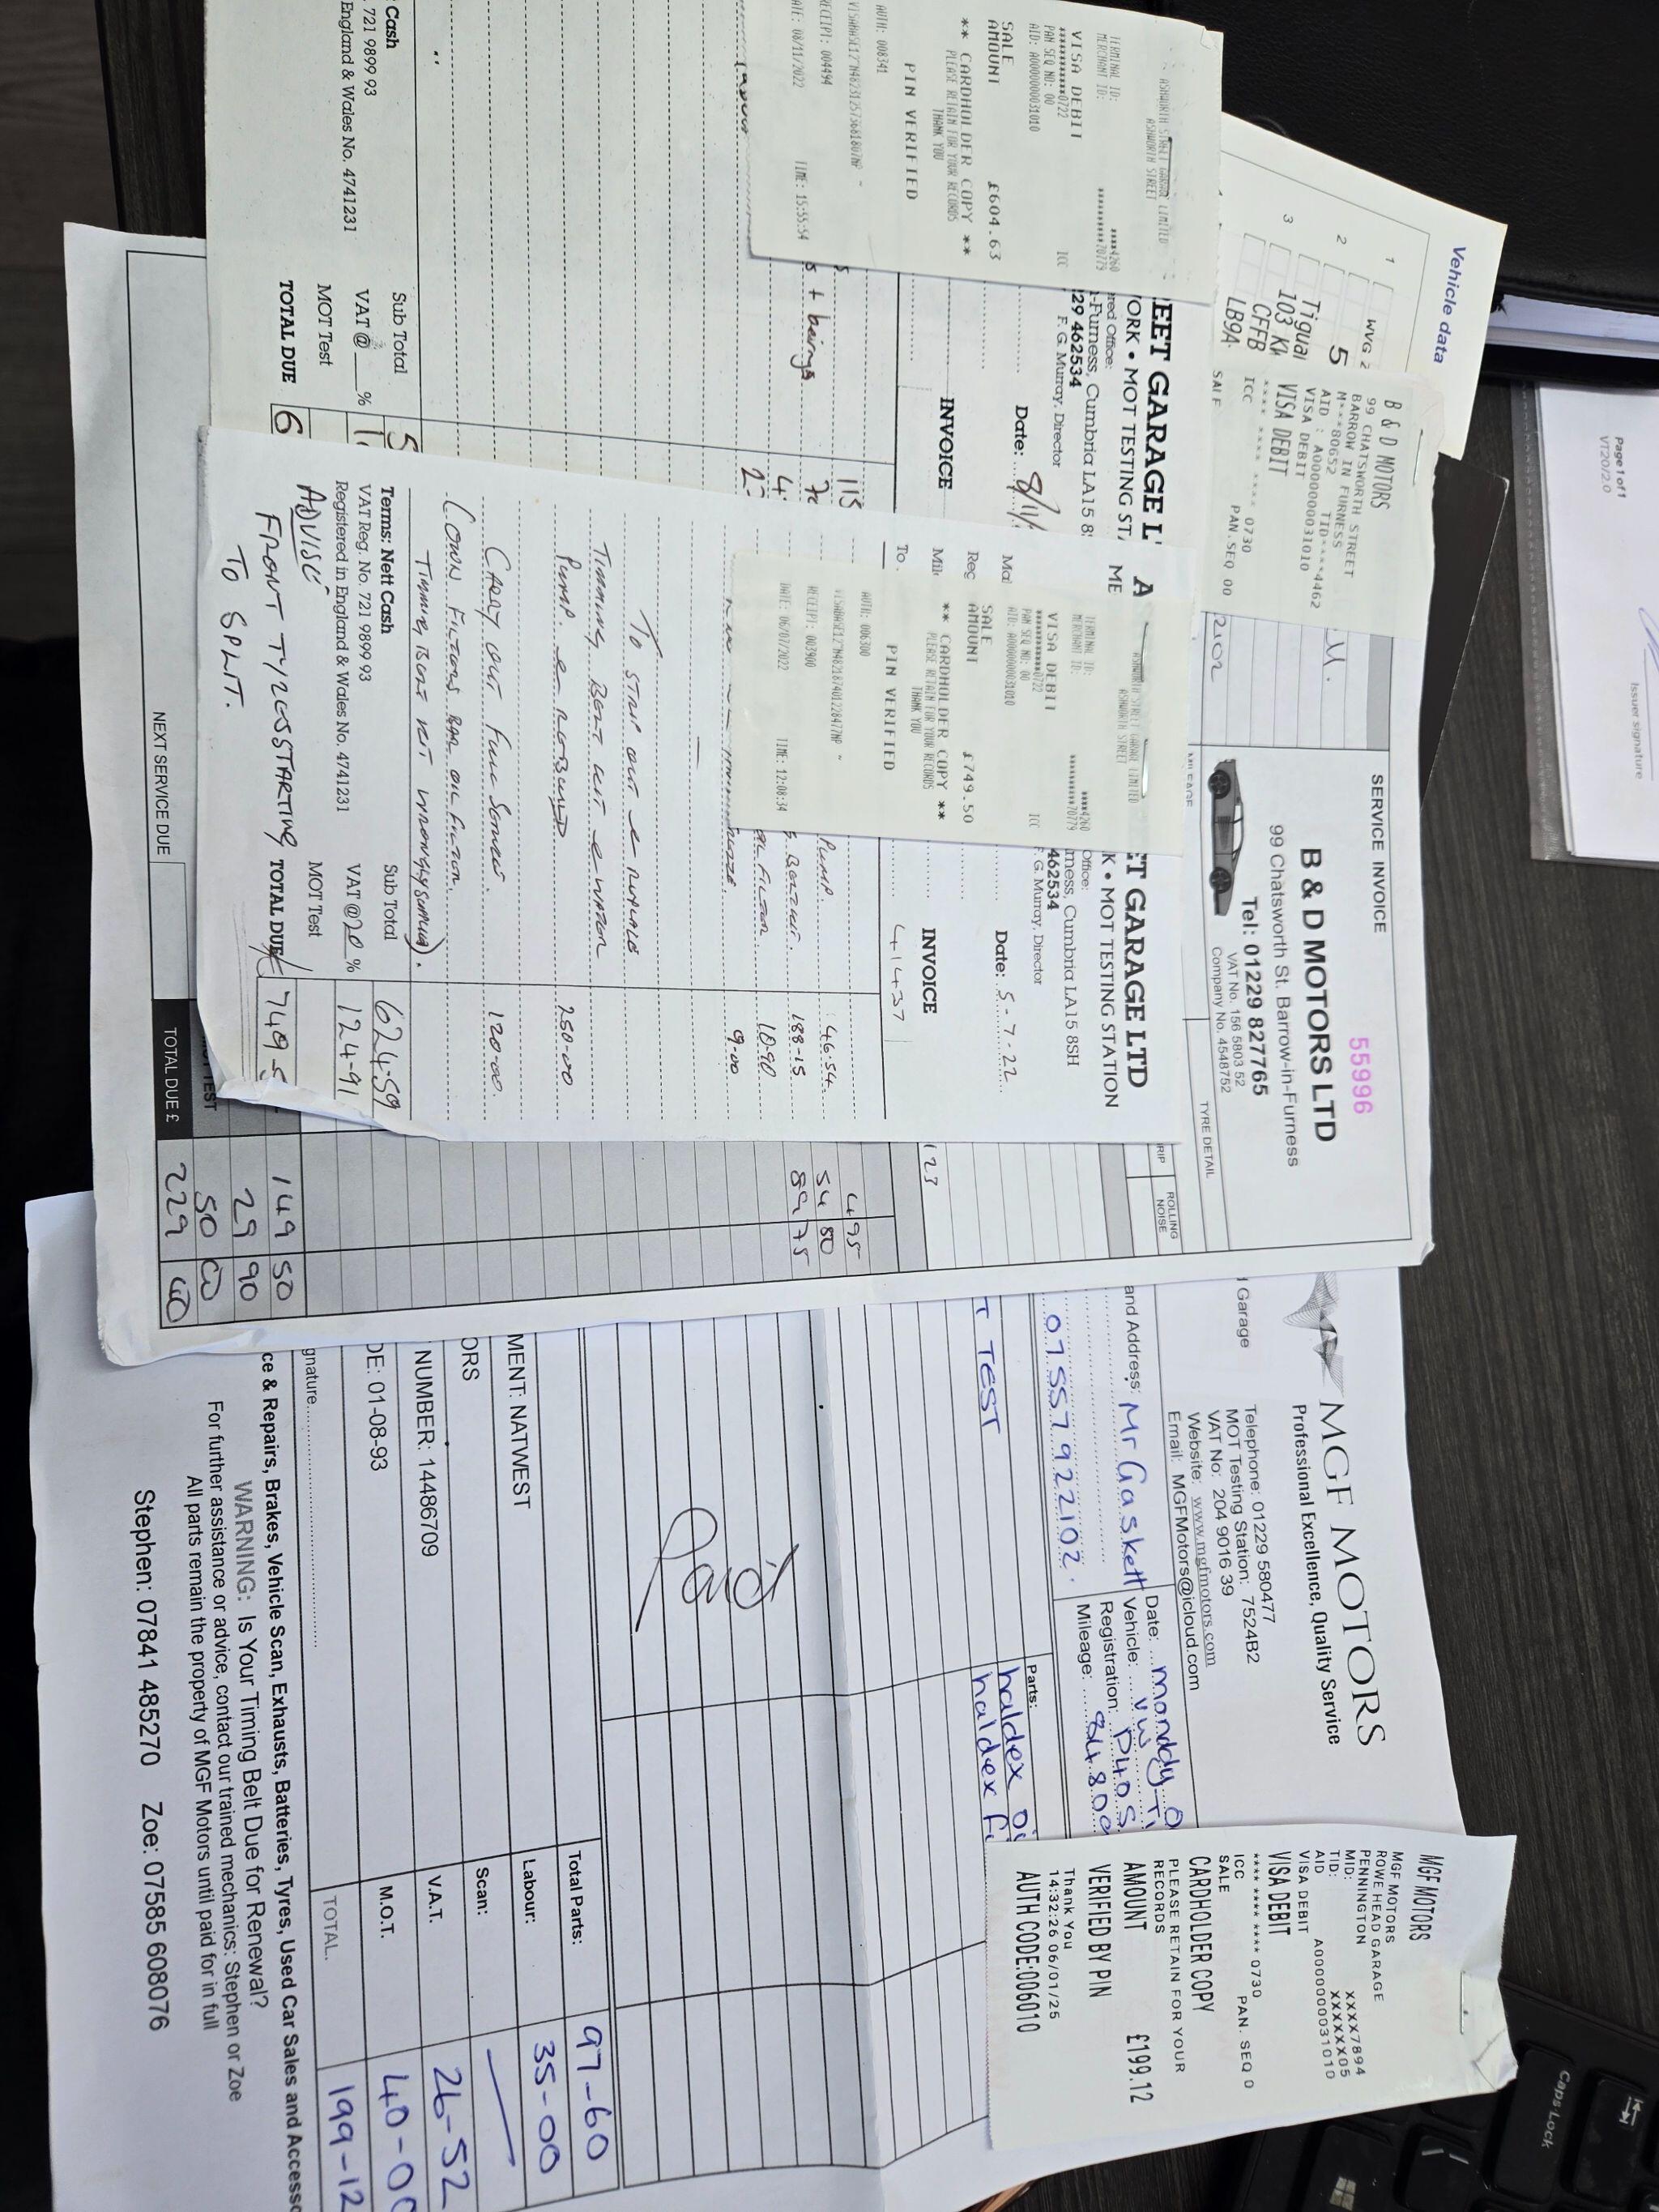 Vehicle data
1
2
3
WVG 2
5
Tigua
103 K
CFFB
LB9A
Page 1 of 1
VT20/2.0
Issuer signature
B & D MOTORS
99 CHATSWORTH STREET
BARROW IN FURNESS
M***80652 TID****4462
AID : A0000000031010
VISA DEBIT
VISA DEBIT
**** **** **** 0730
ICC PAN.SEQ 00
SALE
ASHWORTH STREET GARAGE LIMITED
ASHWORTH STREET
TERMINAL ID: ****4260
MERCHANT ID: *******70779
VISA DEBIT ICC
************0722
PAN SEQ NO: 00
AID: A0000000031010
SALE
AMOUNT £604.63
** CARDHOLDER COPY **
PLEASE RETAIN FOR YOUR RECORDS
THANK YOU
PIN VERIFIED
AUTH: 008341
RECEIPT: 004494
DATE: 08/11/2022 TIME: 15:55:54
EET GARAGE L
ORK • MOT TESTING ST
red Office:
-Furness, Cumbria LA15 8
29 462534
F. G. Murray, Director
Date: 8/11/
INVOICE
115
+ beargs
Cash
721 9899 93
England & Wales No. 4741231
Sub Total 5
VAT @ % 1
MOT Test
TOTAL DUE 6
ASHWORTH STREET GARAGE LIMITED
ASHWORTH STREET
TERMINAL ID: ****4260
MERCHANT ID: *******70779
VISA DEBIT ICC
************0722
PAN SEQ NO: 00
AID: A0000000031010
SALE
AMOUNT £749.50
** CARDHOLDER COPY **
PLEASE RETAIN FOR YOUR RECORDS
THANK YOU
PIN VERIFIED
AUTH: 006300
RECEIPT: 003900
DATE: 06/07/2022 TIME: 12:08:34
A
ME
ET GARAGE LTD
K • MOT TESTING STATION
Office:
rness, Cumbria LA15 8SH
462534
F. G. Murray, Director
Ma Date: 5-7-22
Reg
Mil INVOICE
To 41437
PUMP 46.54
188-15
OIL FILTER 10-90
9-00
TO STRIP OUT & REPLACE
TIMING BELT KIT & WATER
PUMP & REBUILD 250-00
CARRY OUT FULL SERVICE. 120-00
(OWN FILTERS BAR OIL FILTER.
TIMING BELT KIT WRONGLY SUPPLIED).
Terms: Nett Cash
VAT Reg. No. 721 9899 93
Registered in England & Wales No. 4741231
Sub Total 624-59
VAT @ 20 % 124-91
MOT Test
TOTAL DUE 749-5
ADVISE
FRONT TYRES STARTING
TO SPLIT.
SERVICE INVOICE
55996
B & D MOTORS LTD
99 Chatsworth St. Barrow-in-Furness
Tel: 01229 827765
VAT No. 156 5803 52
Company No. 4548752
M.
2102
TYRE DETAIL
RIP
ROLLING
NOISE
123
4 95
54 80
89 75
149 50
29 90
TEST 50 00
NEXT SERVICE DUE
TOTAL DUE £ 229 40
MGF MOTORS
Professional Excellence, Quality Service
Garage
Telephone: 01229 580477
MOT Testing Station: 7524B2
VAT No: 204 9016 39
Website: www.mgfmotors.com
Email: MGFMotors@icloud.com
and Address: Mr Gaskett
07557922102
Date: monday
Vehicle: VW Ti
Registration: P40S
Mileage: 84800
T TEST
Parts:
haldex oi
haldex fi
Paid
MENT: NATWEST
ORS
NUMBER: 14486709
DE: 01-08-93
gnature
Total Parts: 97-60
Labour: 35-00
Scan:
V.A.T. 26-52
M.O.T. 40-00
TOTAL. 199-12
ce & Repairs, Brakes, Vehicle Scan, Exhausts, Batteries, Tyres, Used Car Sales and Accesso
WARNING: Is Your Timing Belt Due for Renewal?
For further assistance or advice, contact our trained mechanics: Stephen or Zoe
All parts remain the property of MGF Motors until paid for in full
Stephen: 07841 485270 Zoe: 07585 608076
MGF MOTORS
MGF MOTORS
ROWE HEAD GARAGE
PENNINGTON
MID: XXXX7894
TID: XXXXXX05
AID A0000000031010
VISA DEBIT
VISA DEBIT
**** **** **** 0730
ICC PAN. SEQ 0
SALE
CARDHOLDER COPY
PLEASE RETAIN FOR YOUR
RECORDS
AMOUNT £199.12
VERIFIED BY PIN
Thank You
14:32:26 06/01/25
AUTH CODE:006010
Caps Lock